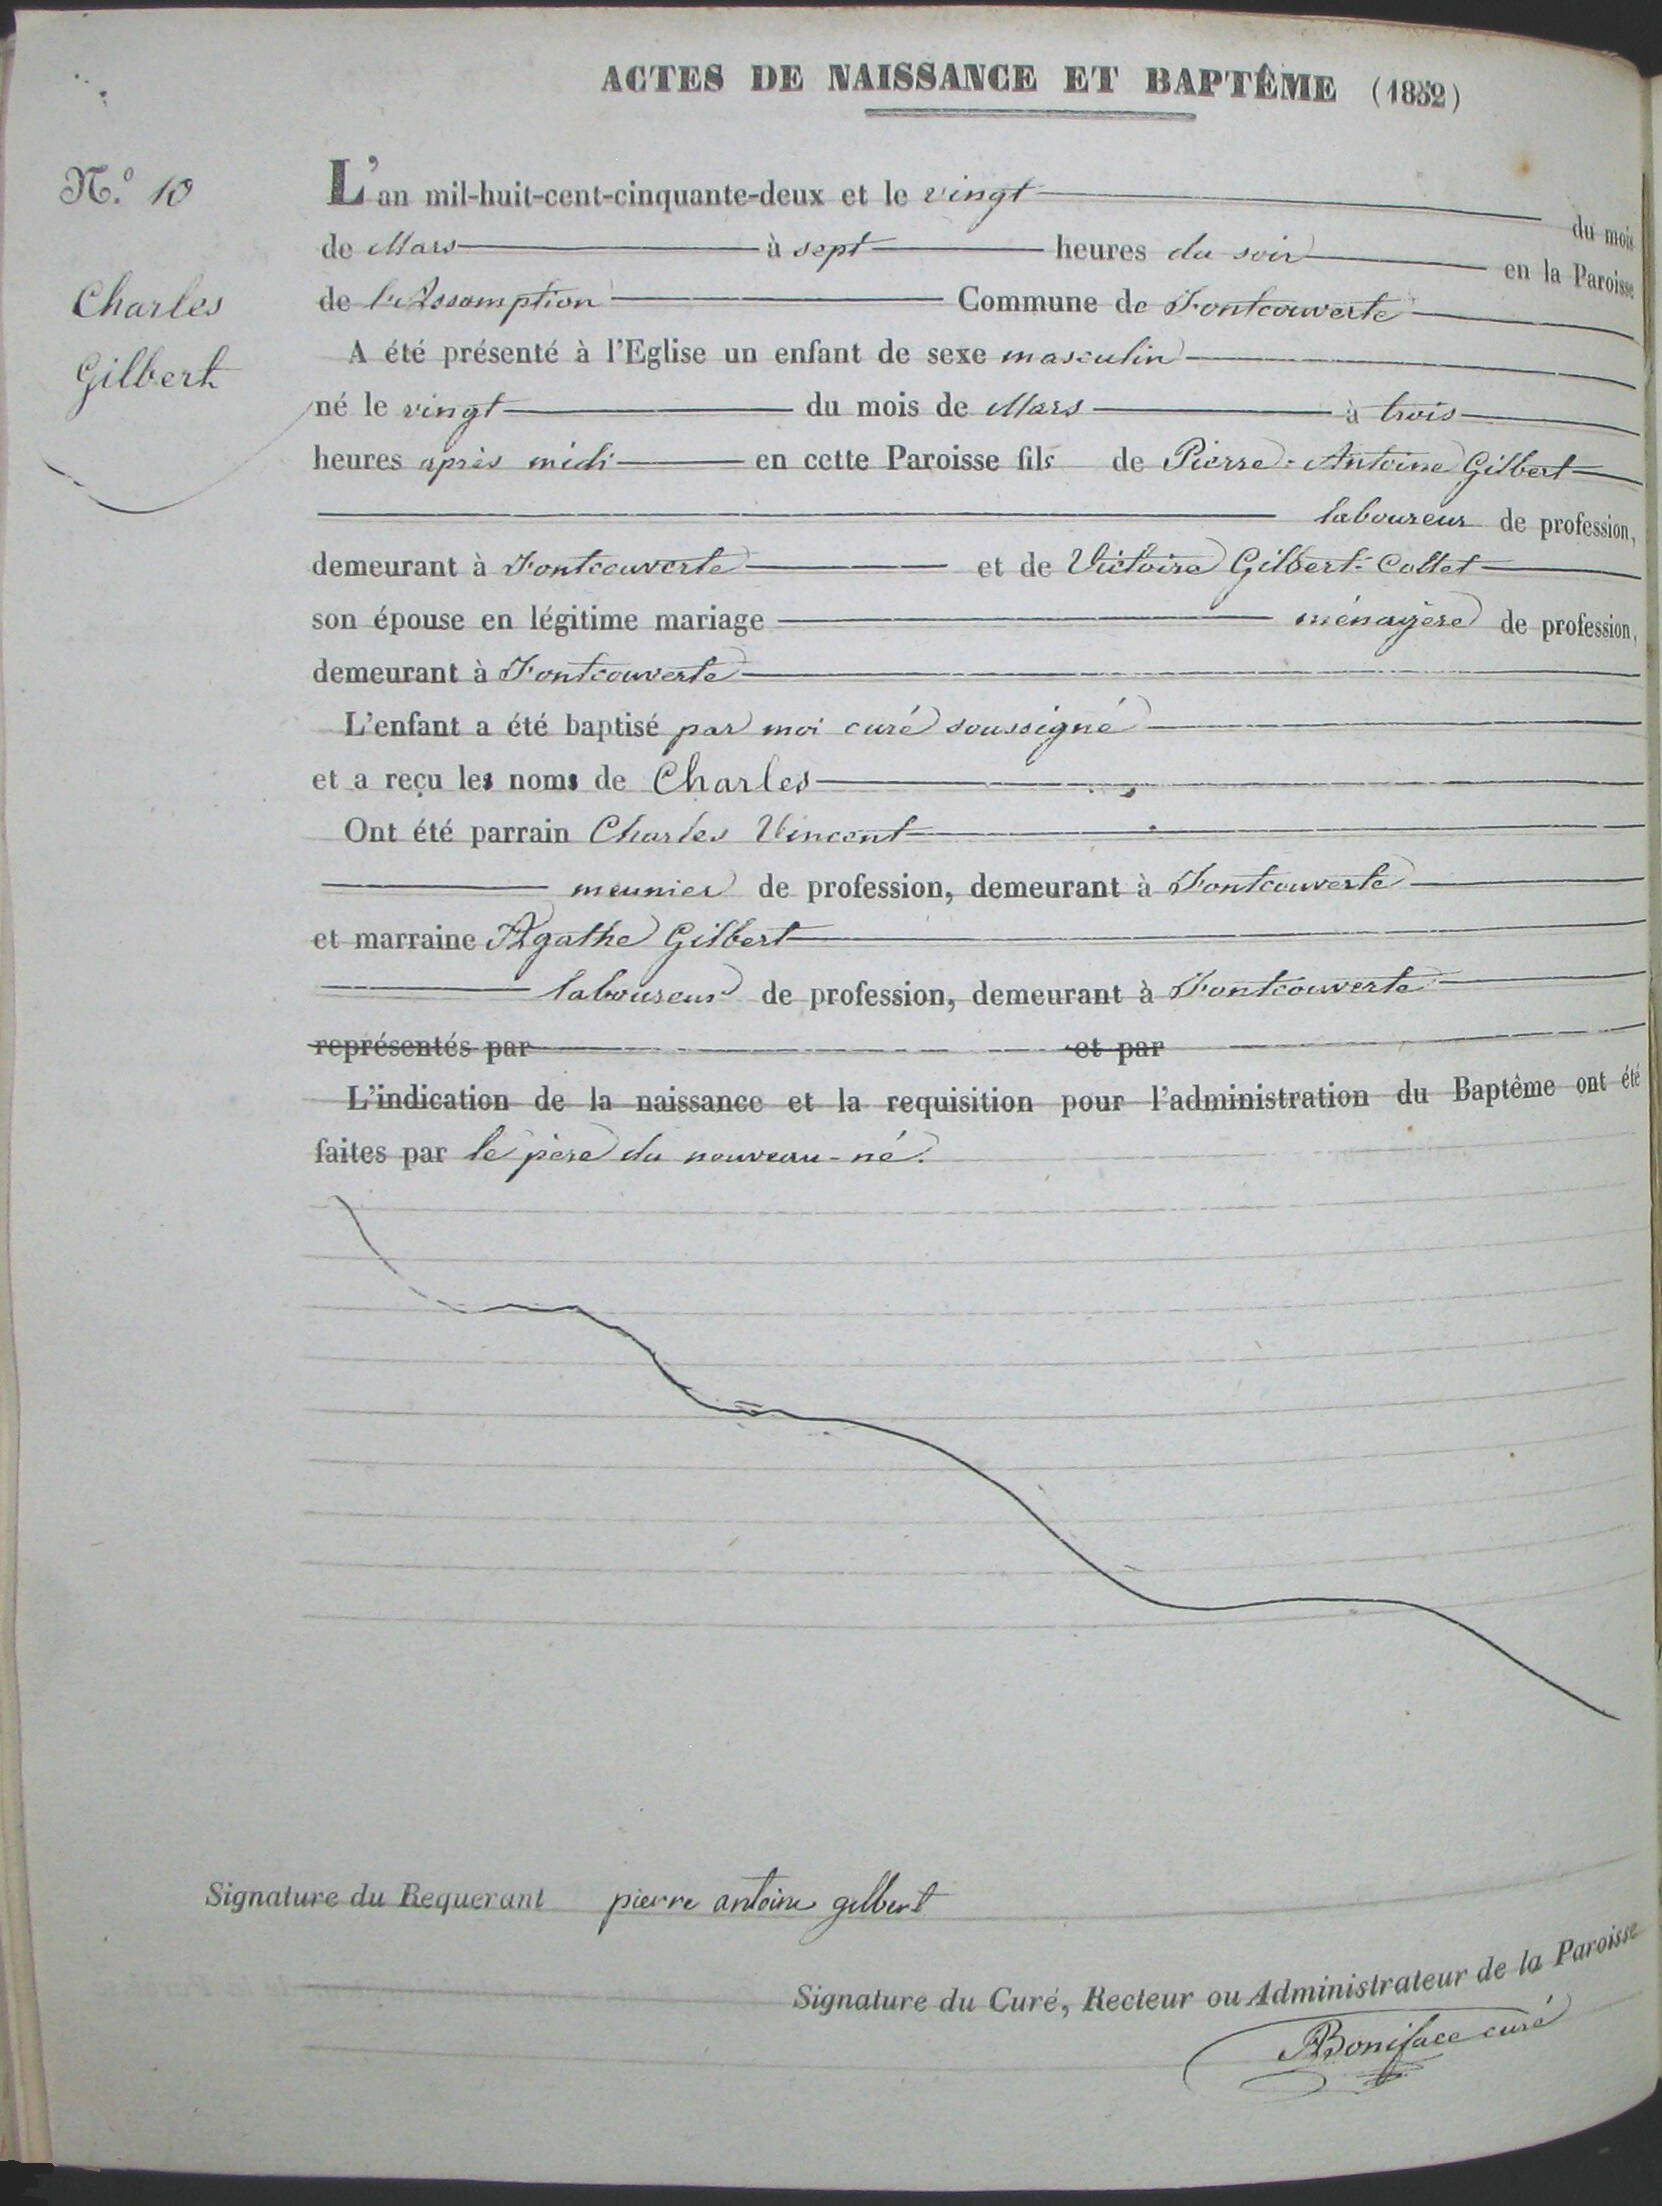 ACTES DE NAISSANCE ET BAPTÊME (1852)
N.º 10
Charles
Gilbert
L'an mil-huit-cent-cinquante-deux et le vingt du mois
de Mars à sept heures du soir en la Paroisse
de l'Assomption Commune de Fontcouverte
A été présenté à l'Eglise un enfant de sexe masculin
né le vingt du mois de Mars à trois
heures après midi en cette Paroisse fils de Pierre-Antoine Gilbert
laboureur de profession,
demeurant à Fontcouverte et de Victoire Gilbert-Collet
son épouse en légitime mariage ménagère de profession,
demeurant à Fontcouverte
L'enfant a été baptisé par moi curé soussigné
et a reçu les noms de Charles
Ont été parrain Charles Vincent
meunier de profession, demeurant à Fontcouverte
et marraine Agathe Gilbert
laboureur de profession, demeurant à Fontcouverte
représentés par et par
L'indication de la naissance et la requisition pour l'administration du Baptême ont été
faites par le père du nouveau-né.
Signature du Requerant pierre antoine gilbert
Signature du Curé, Recteur ou Administrateur de la Paroisse
Boniface curé